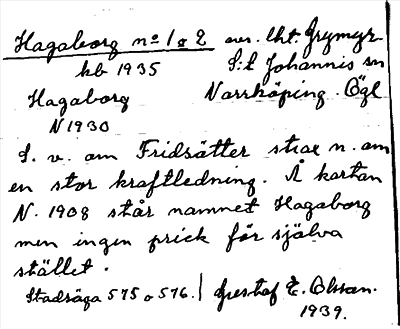 Hagaborg no 1 o 2 av. lht. Grymyr
hb 1935 S:t Johannis sn
Hagaborg Norrköping. Ögl
N 1930
S. v. om Fridsätter strax n. om
en stor kraftledning. Å kartan
N. 1908 står namnet Hagaborg
men ingen prick för själva
stället.
Stadsäga 575 o 576. Gustaf E. Olsson.
1939.